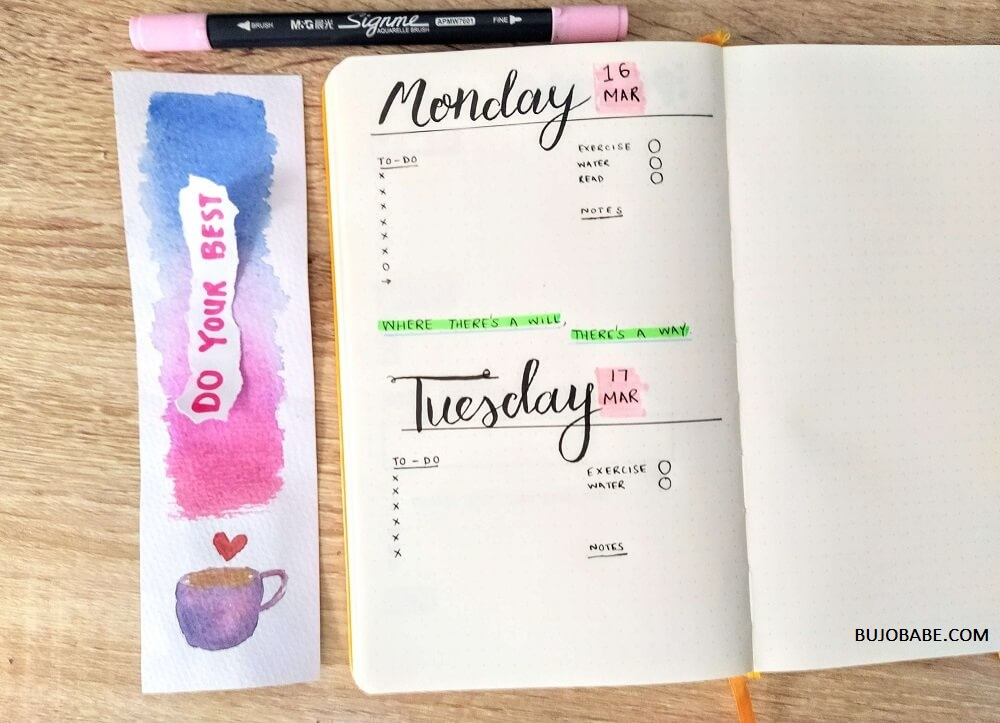 BRUSH M&G晨光 Signme AQUARELLE BRUSH APMW7601 FINE
DO YOUR BEST
Monday
16
MAR
TO-DO
x
x
x
x
x
x
o
→
EXERCISE O
WATER O
READ O
NOTES
WHERE THERE'S A WILL,
THERE'S A WAY
Tuesday
17
MAR
TO-DO
x
x
x
x
x
x
EXERCISE O
WATER O
NOTES
BUJOBABE.COM